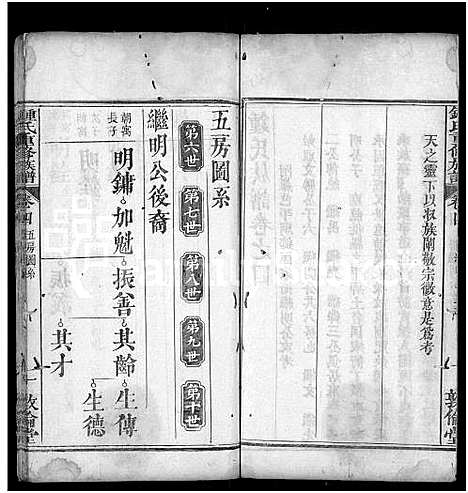 鍾氏重修族譜 卷四
敦倫堂
天之靈下以叙族閒敬宗敬意是為考
五房圖系
第六世 第七世 第八世 第九世 第十世
繼明公後裔
朝寓長子 明鏞 加魁 振善 其齡 生傳
生德
其才
鍾氏重修族譜 卷四 五房圖系 一 敦倫堂